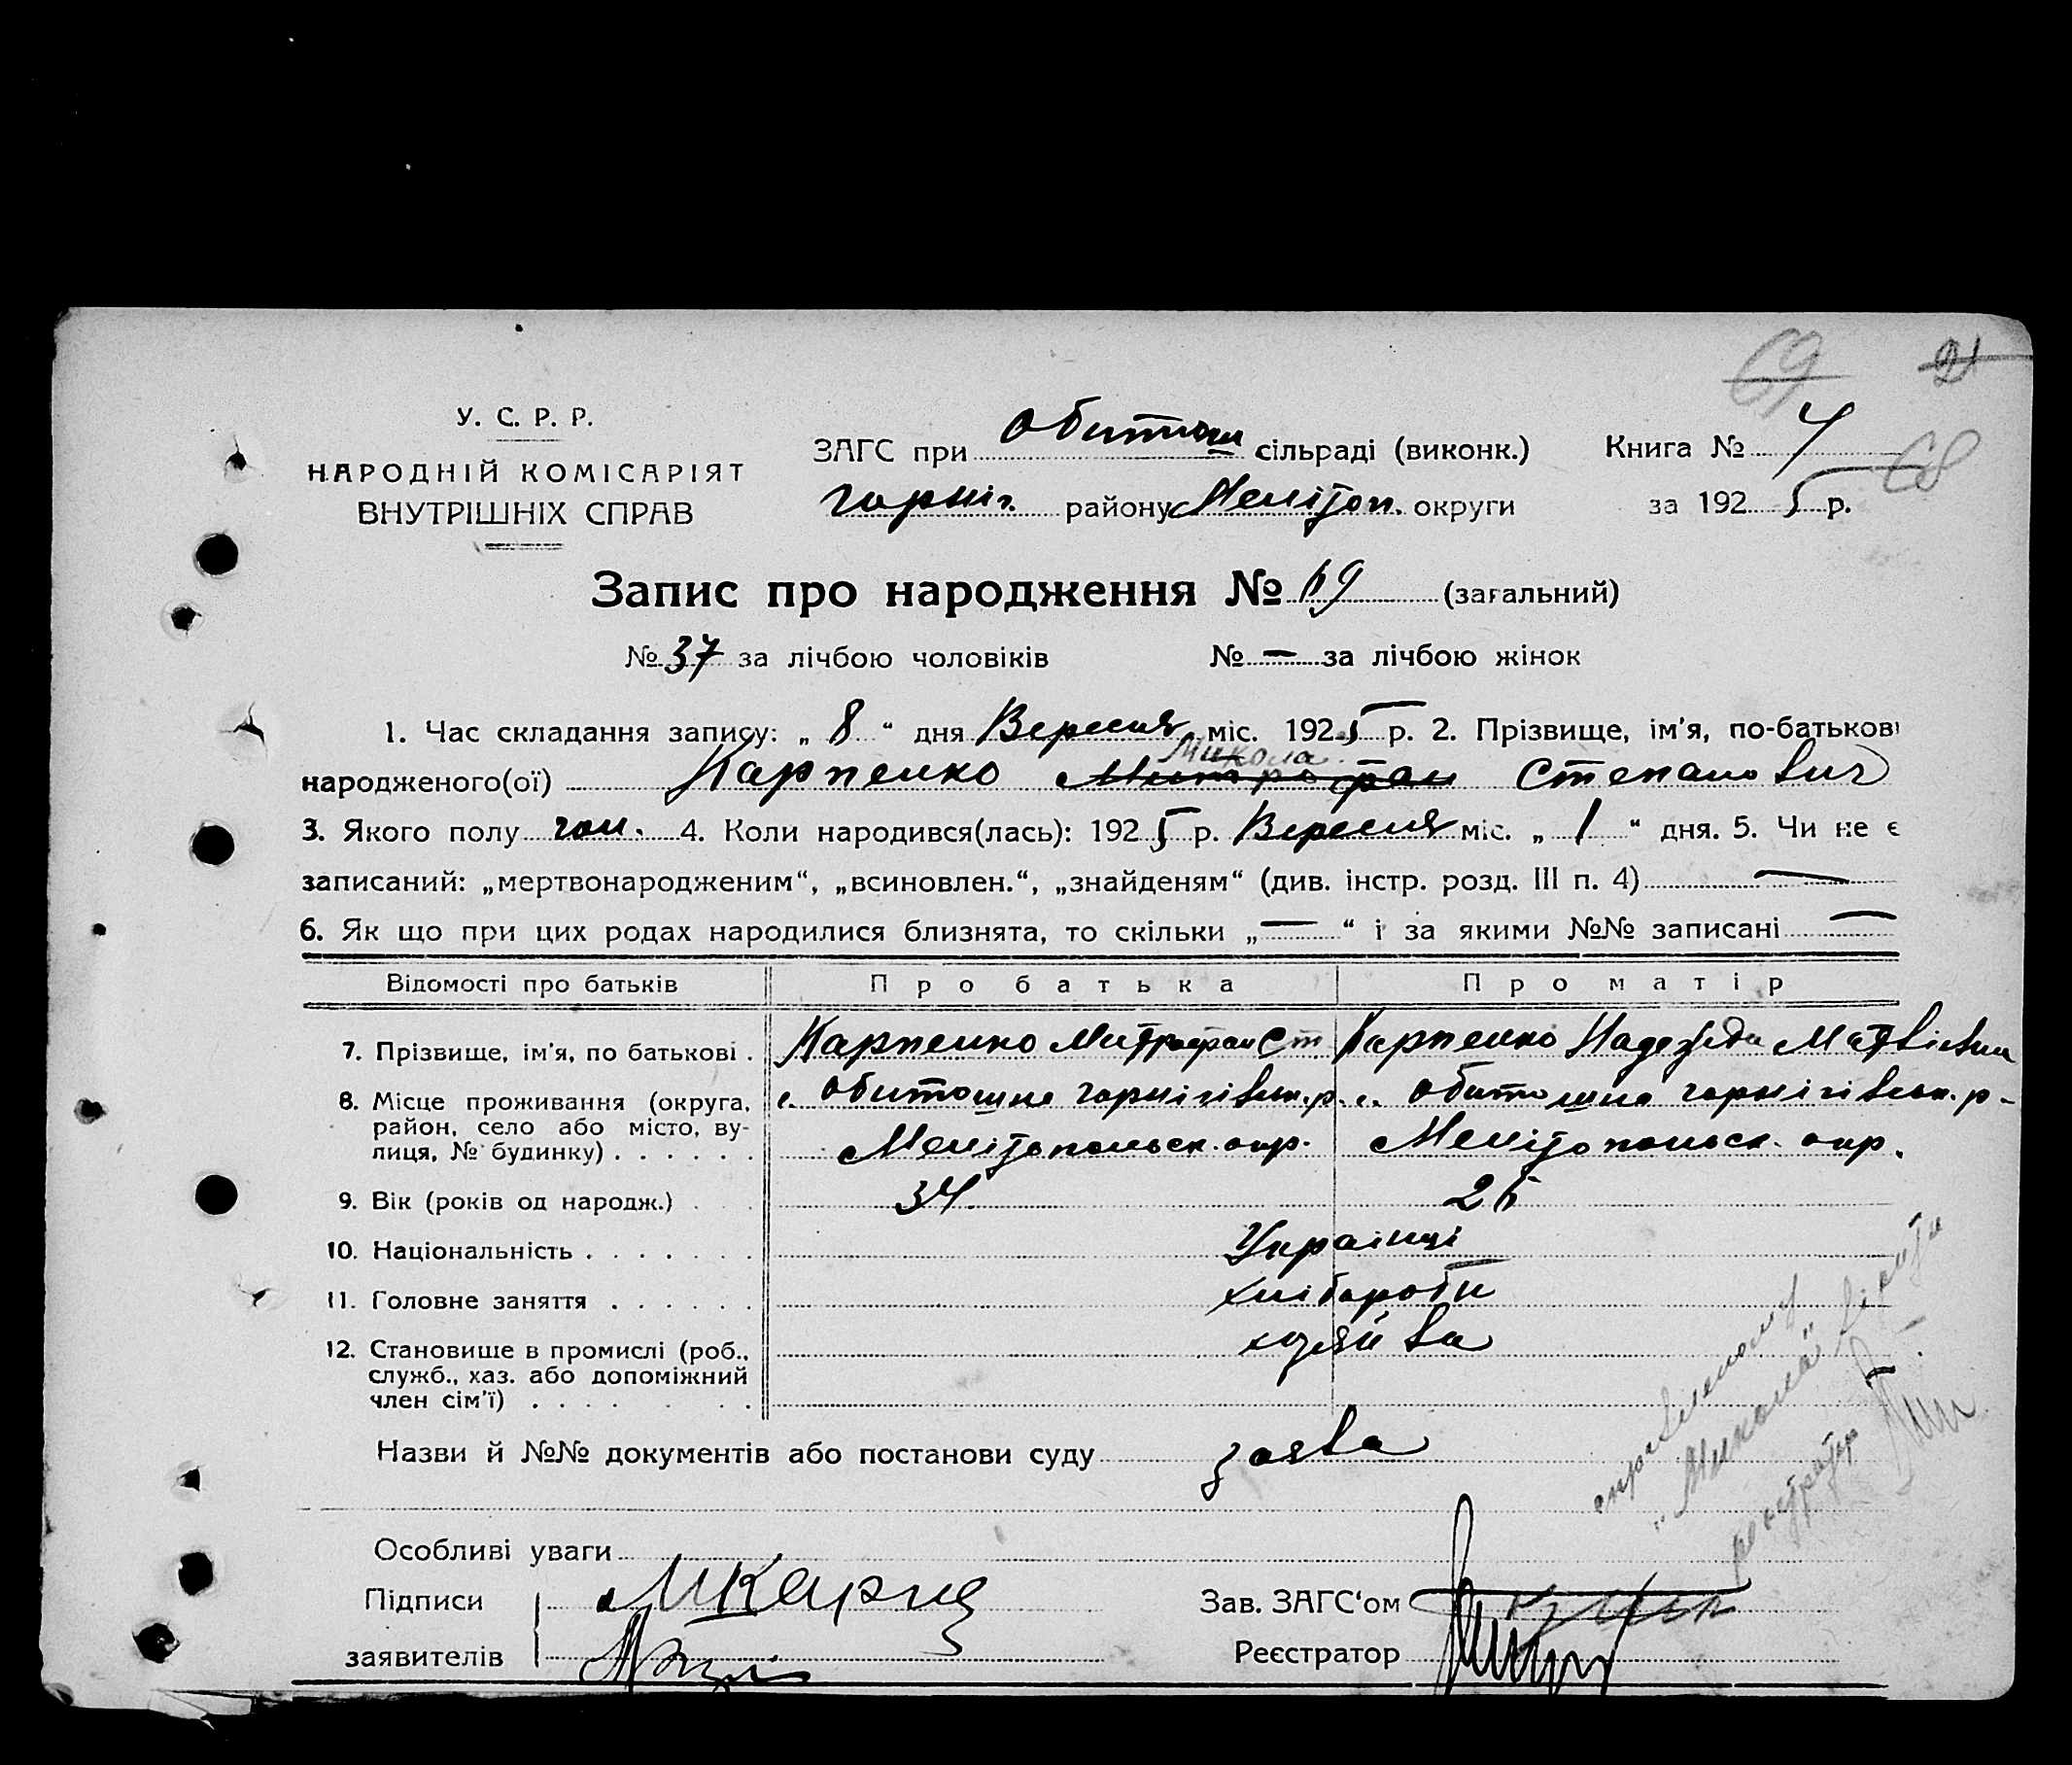 69 21
У. С. Р. Р.
НАРОДНІЙ КОМІСАРІЯТ
ВНУТРІШНІХ СПРАВ
ЗАГС при Обиточн сільраді (виконк.) Книга № 4
68
чорніг. району Меліton. округи за 1925 р.
Запис про народження № 69 (загальний)
№ 37 за лічбою чоловіків № — за лічбою жінок
1. Час складання запису: „ 8 “ дня Вересня міс. 1925 р. 2. Прізвище, ім'я, по-батькові
Микола
народженого(ої) Карпенко Митрофан Степанович
3. Якого полу чол. 4. Коли народився(лась): 1925 р. Вересня міс. „ 1 “ дня. 5. Чи не є
записаний: „мертвонародженим“, „всиновлен.“, „знайденям“ (див. інстр. розд. III п. 4) —
6. Як що при цих родах народилися близнята, то скільки „ — “ і за якими №№ записані —
Відомості про батьків Про батька Про матір
7. Прізвище, ім'я, по батькові . Карпенко Митрофан Ст Карпенко Надежда Матвієвна
8. Місце проживання (округа, район, село або місто, вулиця, № будинку) . . . . . . с. Обиточна чорнігівськ. р. с. Обиточна чорнігівськ. р-
Мелітопольск. окр. Мелітопольск. окр.
9. Вік (років од народж.) . . . 34 26
10. Національність . . . . . . . Українці
11. Головне заняття . . . . . . хлібороби
12. Становище в промислі (роб., служб., хаз. або допоміжний член сім'ї) . . . . . . . хозяйва
Назви й №№ документів або постанови суду заява
справленому
„Микола“ вірити
реєстратор
Особливі уваги
Підписи МКарпе Зав. ЗАГС'ом
заявителів Реєстратор